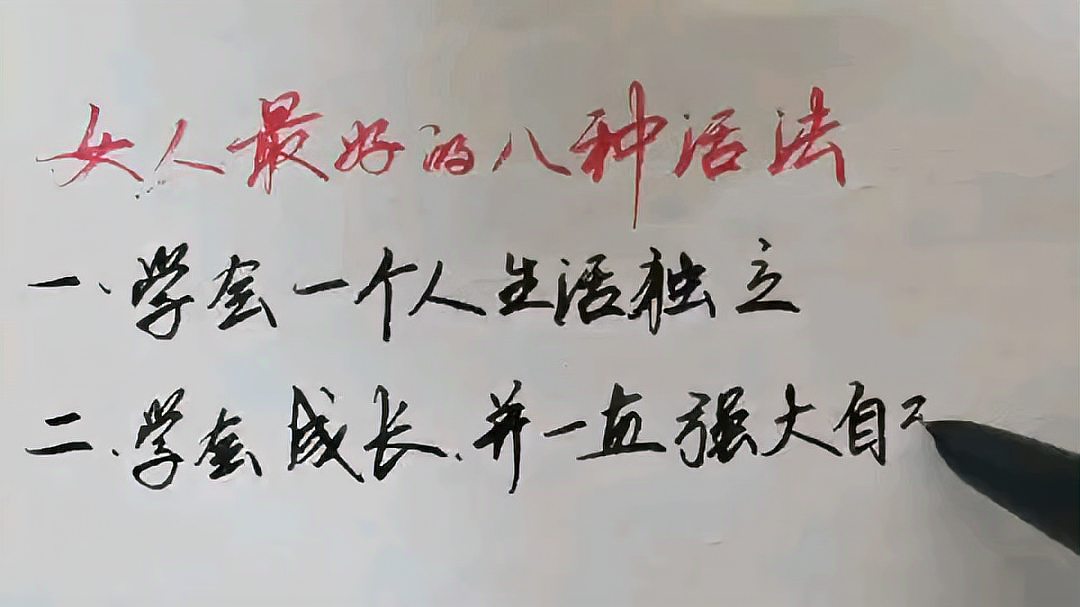 女人最好的八种活法
一、学会一个人生活独立
二、学会成长、并一直强大自